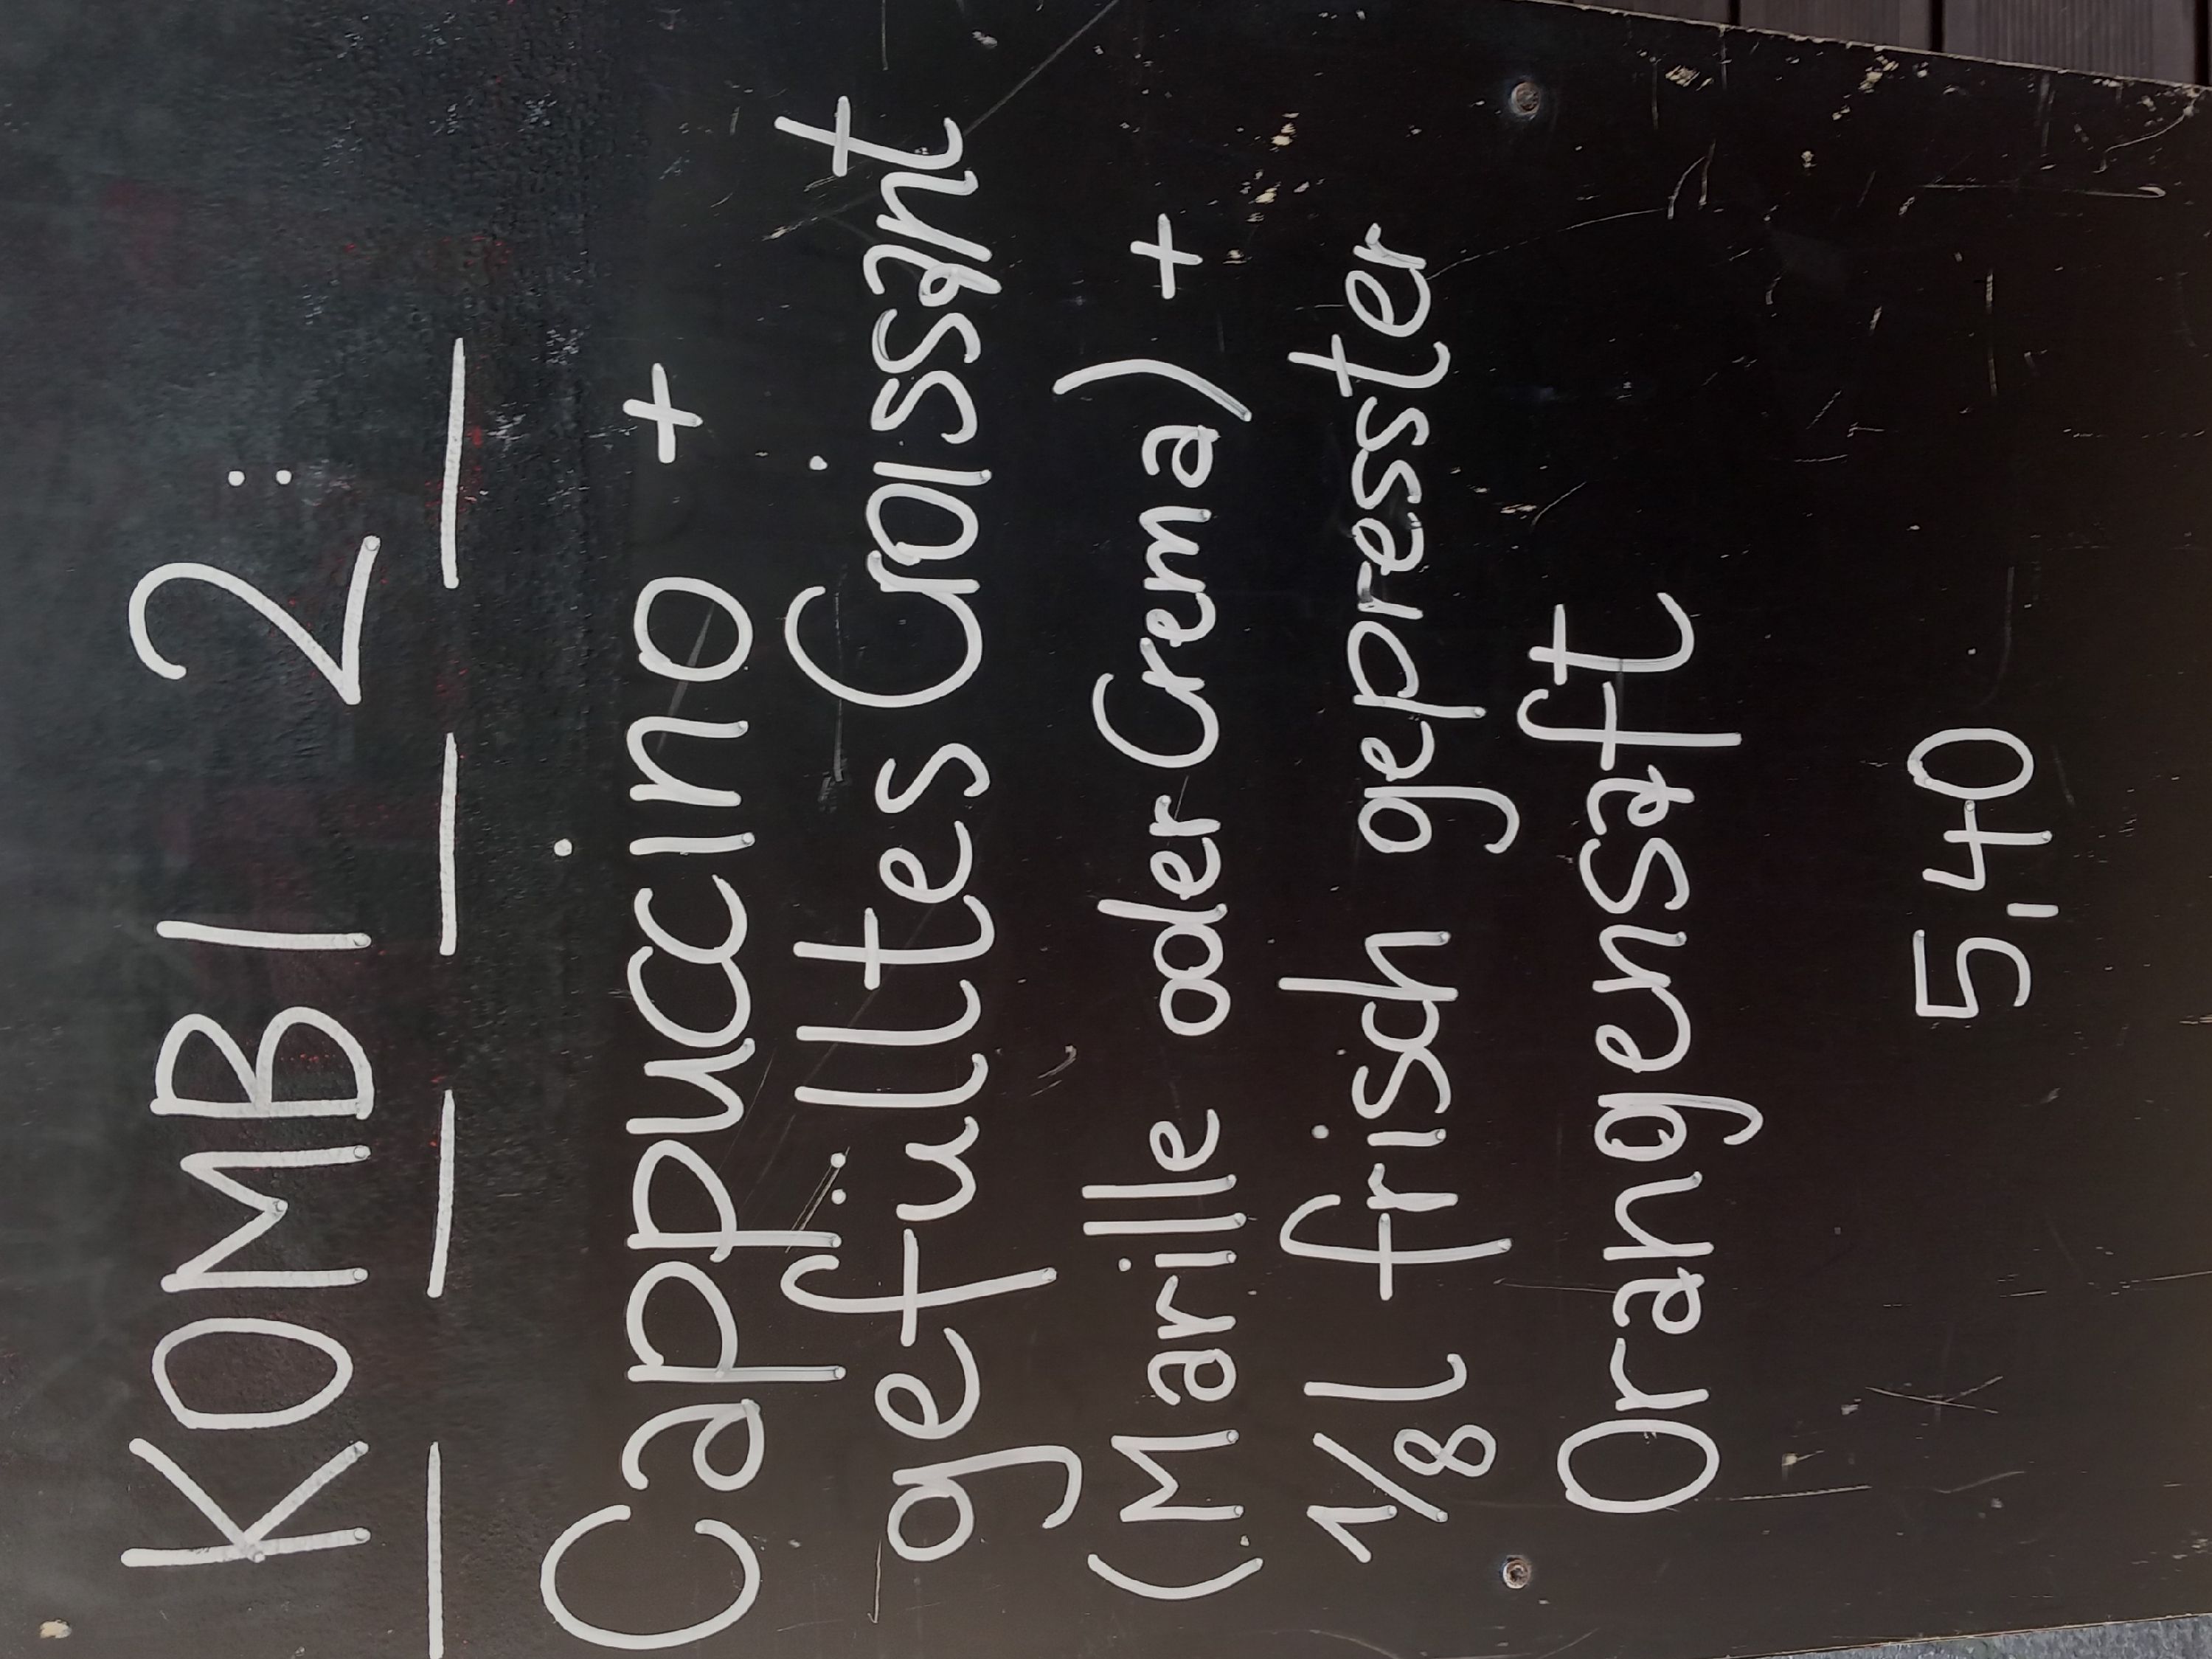 KOMBI 2:
Cappucino +
gefülltes Croissant
(Marille oder Crema) +
1/8l frisch gepresster
Orangensaft
5,40